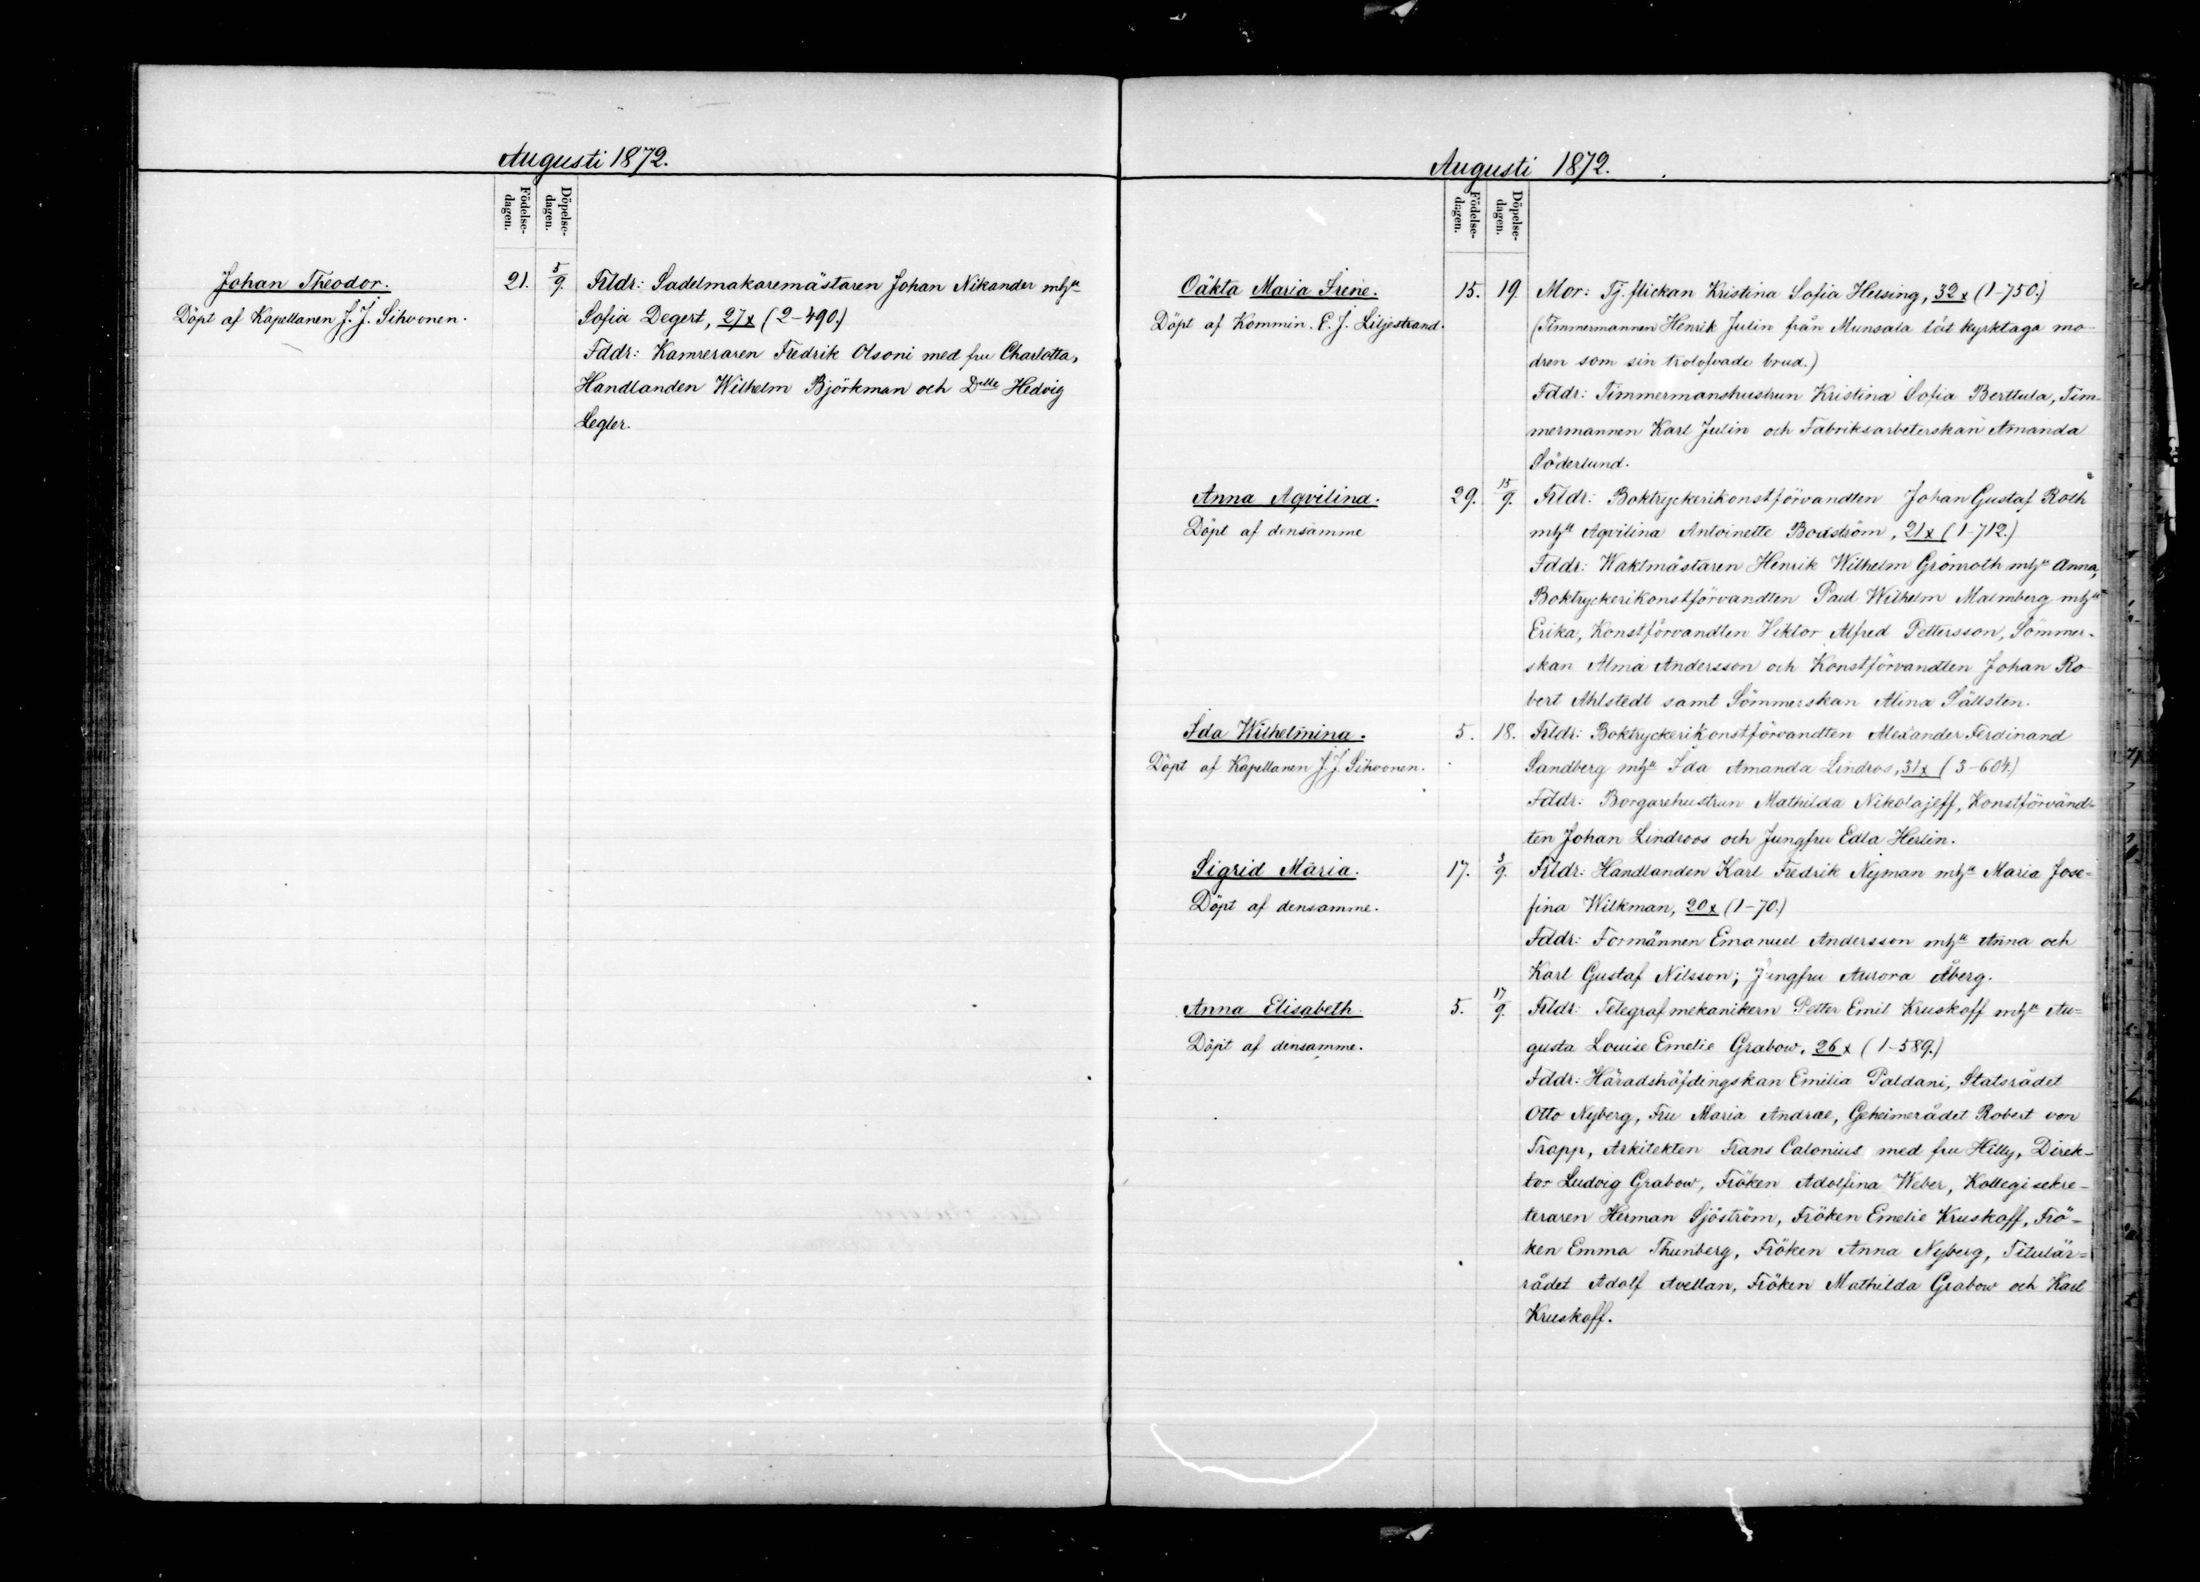 Augusti 1872.
Födelse-
dagen.
Döpelse-
dagen.
Johan Theodor. 21. 5/9. Frldr: Sadelmakaremästaren Johan Nikander mhu
Döpt af Kapellanen J. J. Sihvonen. Sofia Degert, 27x (2-490.)
Fddr: Kamreraren Fredrik Olsoni med fru Charlotta,
Handlanden Wilhelm Björkman och Dlle Hedvig
Legler.
Augusti 1872.
Födelse-
dagen.
Döpelse-
dagen.
Oäkta Maria Irene. 15. 19. Mor: Tj. flickan Kristina Sofia Helsing, 32x (1-750.)
Döpt af Kommin. E. J. Liljestrand. (Timmermannen Henrik Julin från Munsala löt kyrktaga mo-
dren som sin trolofvade brud.)
Fddr: Timmermanshustrun Kristina Sofia Berttula, Tim-
mermannen Karl Julin och Fabriksarbeterskan Amanda
Söderlund.
Anna Aqvilina. 29. 15/9. Frldr: Boktryckerikonstförvandten Johan Gustaf Roth
Döpt af densamme mhu Aqvilina Antoinette Boxström, 21x (1-712.)
Fddr: Waktmästaren Henrik Wilhelm Grönroth mhu Anna,
Boktryckerikonstförvandten Paul Wilhelm Malmberg mhu
Erika, Konstförvandten Viktor Alfred Pettersson, Sömmer-
skan Alma Andersson och Konstförvandten Johan Ro-
bert Ahlstedt samt Sömmerskan Alina Sällsten.
Ida Wilhelmina. 5. 18. Frldr: Boktryckerikonstförvandten Alexander Ferdinand
Döpt af Kapellanen J. J. Sihvonen. Sandberg mhu Ida Amanda Lindros, 31x (3-604.)
Fddr: Borgarehustrun Mathilda Nikolajeff, Konstförvand-
ten Johan Lindroos och Jungfru Edla Herlin.
Sigrid Maria. 17. 3/9. Frldr: Handlanden Karl Fredrik Nyman mhu Maria Jose-
Döpt af densamme. fina Wilkman, 20x (1-70.)
Fddr: Formännen Emanuel Andersson mhu Anna och
Karl Gustaf Nilsson; Jungfru Aurora Åberg.
Anna Elisabeth. 5. 17/9. Frldr: Telegrafmekanikern Petter Emil Kruskoff mhu Au-
Döpt af densamme. gusta Louise Emelie Grabow, 26x (1-589.)
Fddr: Häradshöfdingskan Emilia Paldani, Statsrådet
Otto Nyberg, Fru Maria Andrae, Geheimerådet Robert von
Trapp, Arkitekten Frans Calonius med fru Hilly, Direk-
tor Ludvig Grabow, Fröken Adolfina Weber, Kollegisekre-
teraren Herman Sjöström, Fröken Emelie Kruskoff, Frö-
ken Emma Thunberg, Fröken Anna Nyberg, Titulär-
rådet Adolf Avellan, Fröken Mathilda Grabow och Karl
Kruskoff.